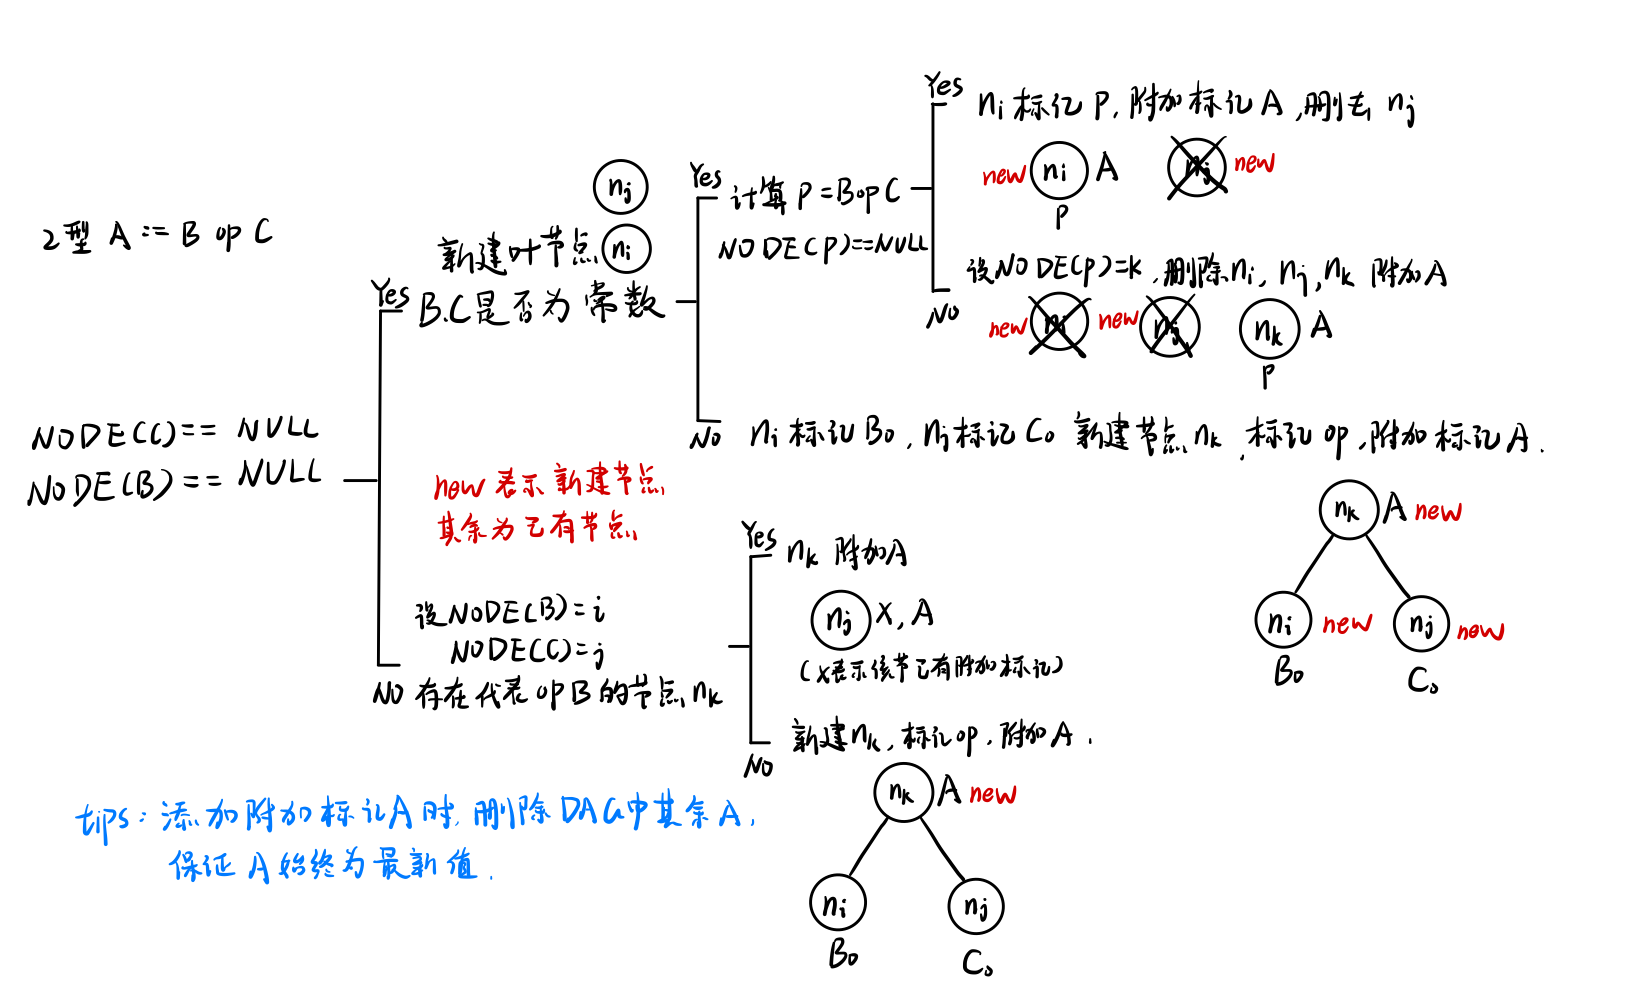 2型 A := B op C
NODE(C)== NULL
NODE(B)== NULL
Yes
新建叶节点
nj
ni
B.C是否为常数
Yes
计算 P=BopC
NODE(P)==NULL
Yes
ni 标记 P, 附加标记 A ,删去 nj
new ni A
P
nj new
No
设NODE(P)=k ,删除ni, nj,nk 附加A
new ni new nj nk A
P
No
ni 标记 B0, nj标记 C0 新建节点 nk ,标记 op ,附加标记A.
nk A new
ni new nj new
B0 C0
new 表示新建节点
其余为已有节点
No
设NODE(B)=i
NODE(C)=j
存在代表opB的节点 nk
Yes
nk 附加A
nj X, A
(X表示该节已有附加标记)
No
新建nk,标记op,附加A.
nk A new
ni nj
B0 C0
tips: 添加附加标记A时,删除DAG中其余A,
保证A始终为最新值.